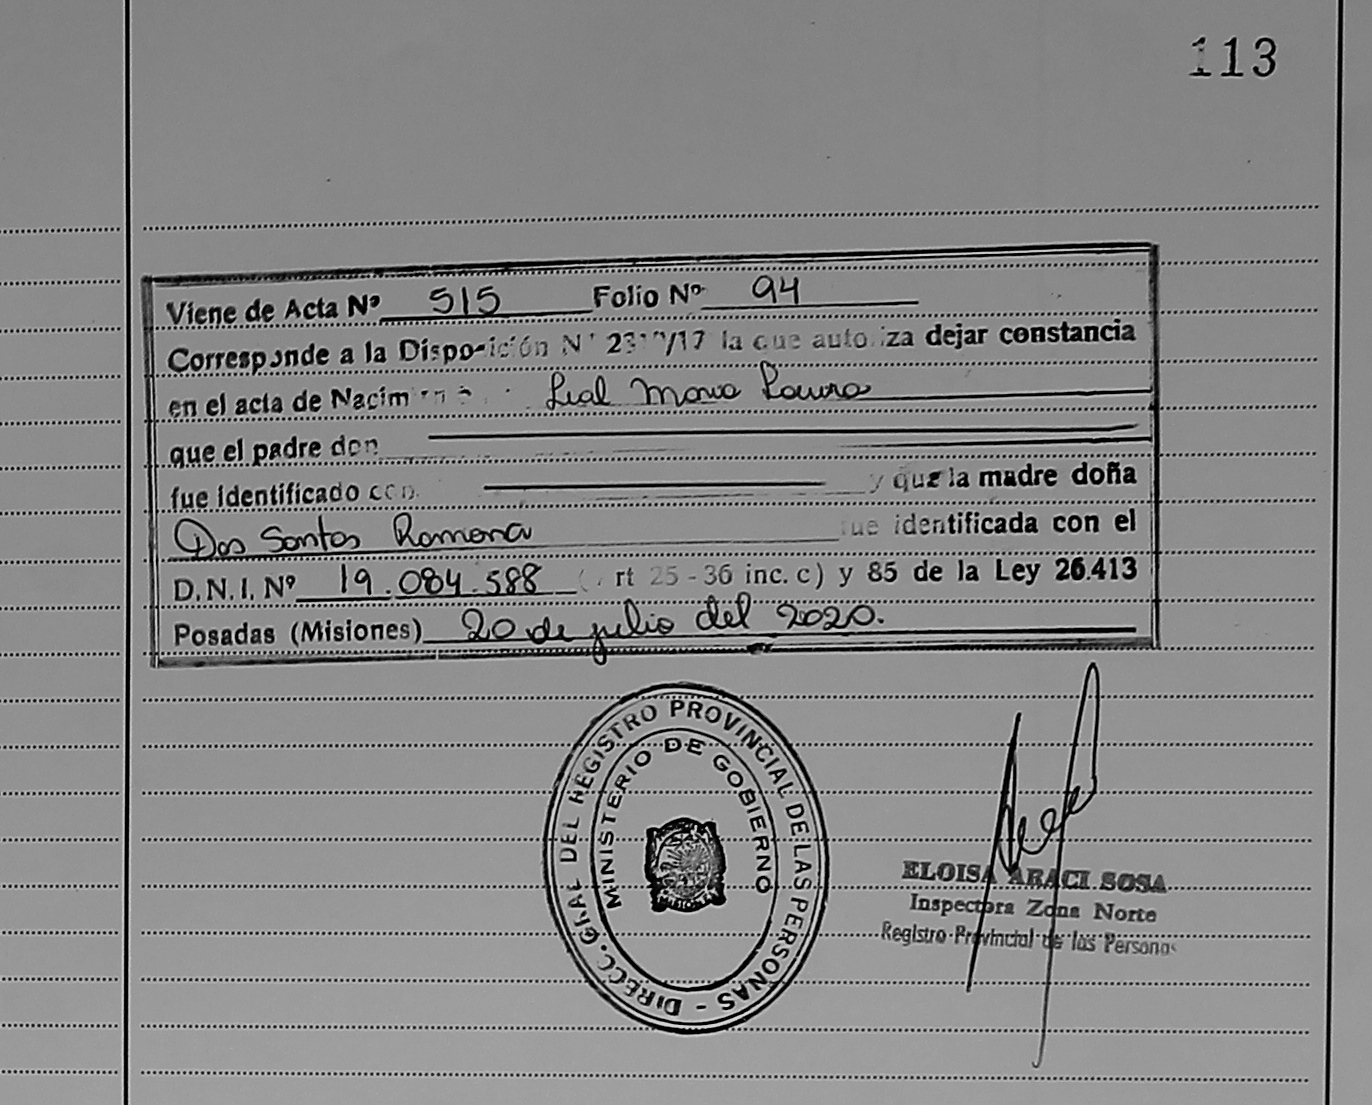 113
Viene de Acta Nº 515 Folio Nº 94
Corresponde a la Disposición Nº /17 la que autoriza dejar constancia
en el acta de Nacim Leal Maria Laura
que el padre don
fue identificado con y que la madre doña
Dos Santos Ramona fue identificada con el
D.N.I. Nº 19.084.588 (Art 25-36 inc. c) y 85 de la Ley 26.413
Posadas (Misiones) 20 de julio del 2020.
DIRECC. GRAL DEL REGISTRO PROVINCIAL DE LAS PERSONAS -
MINISTERIO DE GOBIERNO
ELOISA ARACI SOSA
Inspectora Zona Norte
Registro Provincial de las Personas